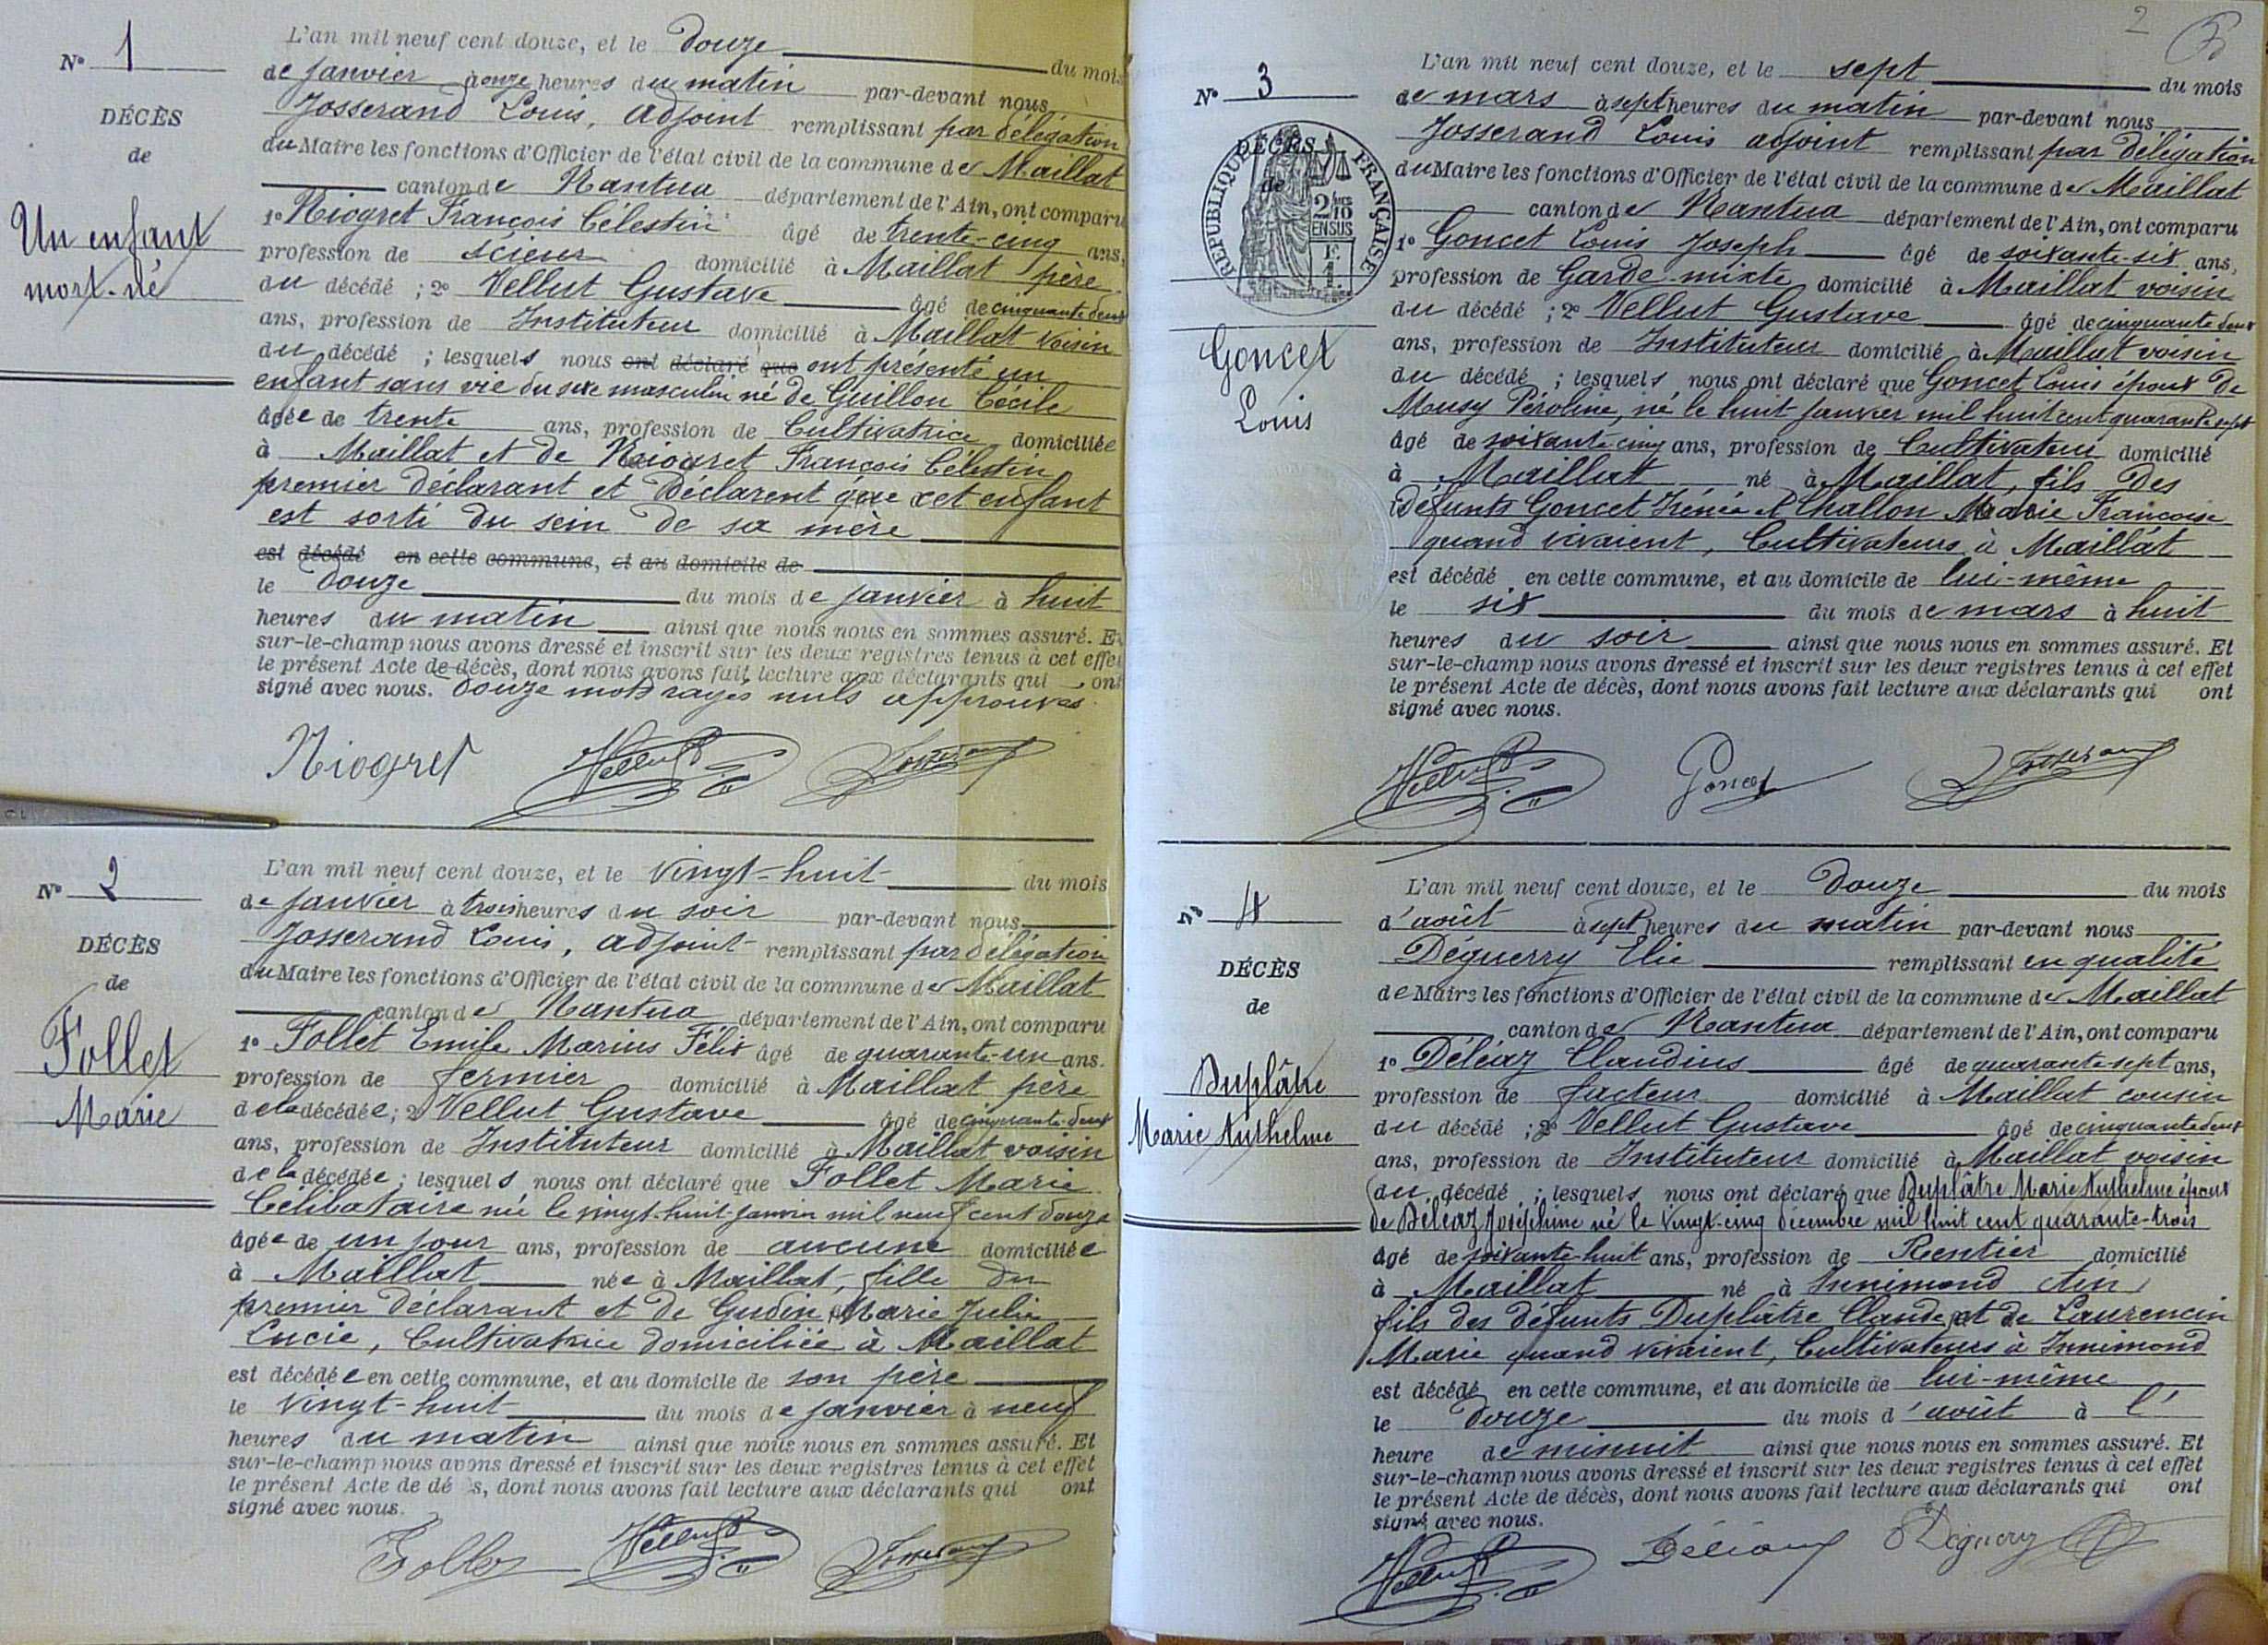 N° 1
DÉCÈS
de
Un enfant
mort-né
L'an mil neuf cent douze, et le douze du mois
de janvier à onze heures du matin par-devant nous
Josserand Louis, adjoint remplissant par délégation
du Maire les fonctions d'Officier de l'état civil de la commune de Maillat
canton de Nantua département de l'Ain, ont comparu
1° Niogret François Célestin âgé de trente-cinq ans,
profession de scieur domicilié à Maillat père
du décédé ; 2° Vellut Gustave âgé de cinquante deux
ans, profession de Instituteur domicilié à Maillat voisin
du décédé ; lesquels nous ont déclaré que ont présenté un
enfant sans vie du sexe masculin né de Guillon Cécile
âgée de trente ans, profession de Cultivatrice domiciliée
à Maillat et de Niogret François Célestin
premier déclarant et Déclarent que cet enfant
est sorti du sein de sa mère
est décédé en cette commune, et au domicile de
le douze du mois de janvier à huit
heures du matin ainsi que nous nous en sommes assuré. Et
sur-le-champ nous avons dressé et inscrit sur les deux registres tenus à cet effet
le présent Acte de décès, dont nous avons fait lecture aux déclarants qui ont
signé avec nous. Douze mots rayés nuls approuvés.
Niogret Vellut Josserand
N° 2
DÉCÈS
de
Follet
Marie
L'an mil neuf cent douze, et le vingt-huit du mois
de janvier à trois heures du soir par-devant nous
Josserand Louis, adjoint remplissant par délégation
du Maire les fonctions d'Officier de l'état civil de la commune de Maillat
canton de Nantua département de l'Ain, ont comparu
1° Follet Emile Marius Félix âgé de quarante-un ans.
profession de fermier domicilié à Maillat père
de la décédée ; 2° Vellut Gustave âgé de cinquante-deux
ans, profession de Instituteur domicilié à Maillat voisin
de la décédée ; lesquels nous ont déclaré que Follet Marie
Célibataire née le vingt-huit janvier mil neuf cent douze
âgée de un jour ans, profession de aucune domiciliée
à Maillat née à Maillat, fille du
premier déclarant et de Gudin Marie Julie
Lucie, Cultivatrice domiciliée à Maillat
est décédée en cette commune, et au domicile de son père
le vingt-huit du mois de janvier à neuf
heures du matin ainsi que nous nous en sommes assuré. Et
sur-le-champ nous avons dressé et inscrit sur les deux registres tenus à cet effet
le présent Acte de dé s, dont nous avons fait lecture aux déclarants qui ont
signé avec nous.
Follet Vellut Josserand
2
N° 3
DÉCÈS
de
RÉPUBLIQUE FRANÇAISE
2/10
EN SUS
Goncet
Louis
L'an mil neuf cent douze, et le sept du mois
de mars à sept heures du matin par-devant nous
Josserand Louis adjoint remplissant par délégation
du Maire les fonctions d'Officier de l'état civil de la commune de Maillat
canton de Nantua département de l'Ain, ont comparu
1° Goncet Louis Joseph âgé de soixante-six ans,
profession de Garde-mixte domicilié à Maillat voisin
du décédé ; 2° Vellut Gustave âgé de cinquante deux
ans, profession de Instituteur domicilié à Maillat voisin
du décédé ; lesquels nous ont déclaré que Goncet Louis époux de
Musy Péroline, né le huit janvier mil huit cent quarante sept
âgé de soixante-cinq ans, profession de Cultivateur domicilié
à Maillat né à Maillat, fils des
Défunts Goncet Irénée et Challon Marie Françoise
quand vivaient, Cultivateurs à Maillat
est décédé en cette commune, et au domicile de lui-même
le six du mois de mars à huit
heures du soir ainsi que nous nous en sommes assuré. Et
sur-le-champ nous avons dressé et inscrit sur les deux registres tenus à cet effet
le présent Acte de décès, dont nous avons fait lecture aux déclarants qui ont
signé avec nous.
Vellut Goncet Josserand
N° 4
DÉCÈS
de
Duplâtre
Marie Anthelme
L'an mil neuf cent douze, et le Douze du mois
d'août à sept heures du matin par-devant nous
Déguerry Elie remplissant en qualité
de Maire les fonctions d'Officier de l'état civil de la commune de Maillat
canton de Nantua département de l'Ain, ont comparu
1° Déléaz Claudius âgé de quarante-sept ans,
profession de facteur domicilié à Maillat cousin
du décédé ; 2° Vellut Gustave âgé de cinquante deux
ans, profession de Instituteur domicilié à Maillat voisin
du décédé ; lesquels nous ont déclaré que Duplâtre Marie Anthelme époux
de Déléaz Joséphine né le vingt-cinq décembre mil huit cent quarante-trois
âgé de soixante-huit ans, profession de Rentier domicilié
à Maillat né à Innimond Ain
fils des défunts Duplâtre Claude et de Laurencin
Marie quand vivaient, Cultivateurs à Innimond
est décédé en cette commune, et au domicile de lui-même
le douze du mois d'août à l'
heure de minuit ainsi que nous nous en sommes assuré. Et
sur-le-champ nous avons dressé et inscrit sur les deux registres tenus à cet effet
le présent Acte de décès, dont nous avons fait lecture aux déclarants qui ont
signé avec nous.
Vellut Déléaz Déguerry